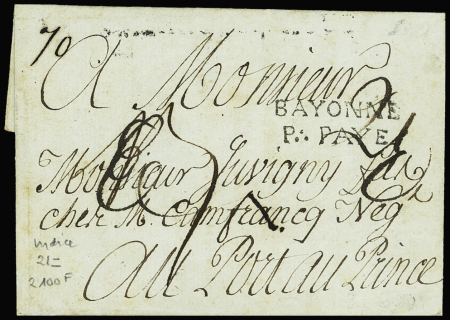 70
A Monsieur
BAYONNE
P.. PAYE
Monsieur Juvigny
chez M. Camfrancq Neg
Au Port au Prince
indice
21-
2100F